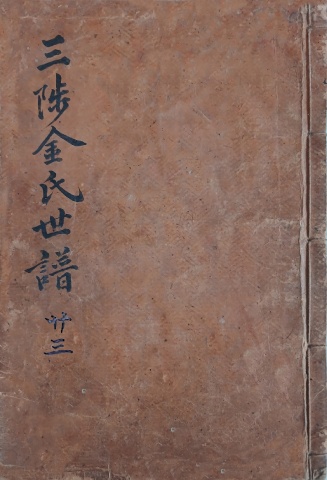 三陟金氏世譜
廿三